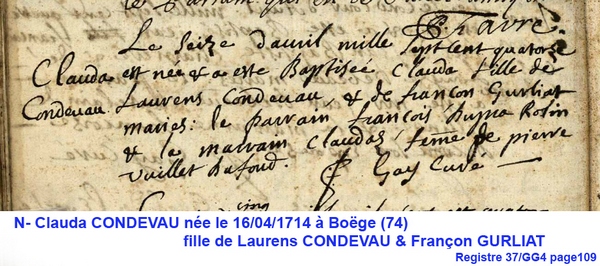 P Favre
Le seize davril mille sept cent quatorse
Clauda est née & a este Baptiseé Clauda fille de
Condevau Laurens Condevau, & de françon Gurliat
mariés: le parrain françois Rolin
& la marraine Claudaz femme de pierre
Vuillet Bafoud. P Gay Curé
N- Clauda CONDEVAU née le 16/04/1714 à Boëge (74)
fille de Laurens CONDEVAU & Françon GURLIAT
Registre 37/GG4 page109